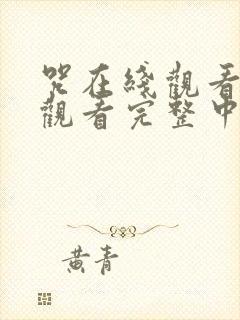 咒在綫觀看
觀看完整中
黃青